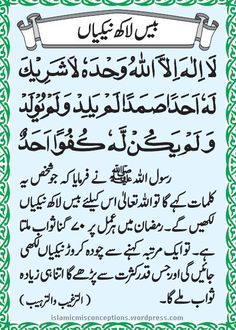 بیس لاکھ نیکیاں
لَا اِلٰهَ اِلَّا اللهُ وَحْدَهٗ لَا شَرِیْكَ
لَهٗ اَحَدًا صَمَدًا لَمْ یَلِدْ وَلَمْ یُوْلَدْ
وَلَمْ یَكُنْ لَّهٗ كُفُوًا اَحَدٌ
رسول اللہ ﷺ نے فرمایا کہ جو شخص یہ
کلمات کہے گا تو اللہ تعالیٰ اس کیلئے بیس لاکھ نیکیاں
لکھیں گے۔ رمضان میں ہر عمل پر ۷۰ گنا ثواب ملتا
ہے۔ تو ایک مرتبہ کہنے سے چودہ کروڑ نیکیاں لکھی
جائیں گی اور جس قدر کثرت سے پڑھے گا اتنا ہی زیادہ
ثواب ملے گا۔ (الترغیب والترہیب)
islamicmisconceptions.wordpress.com